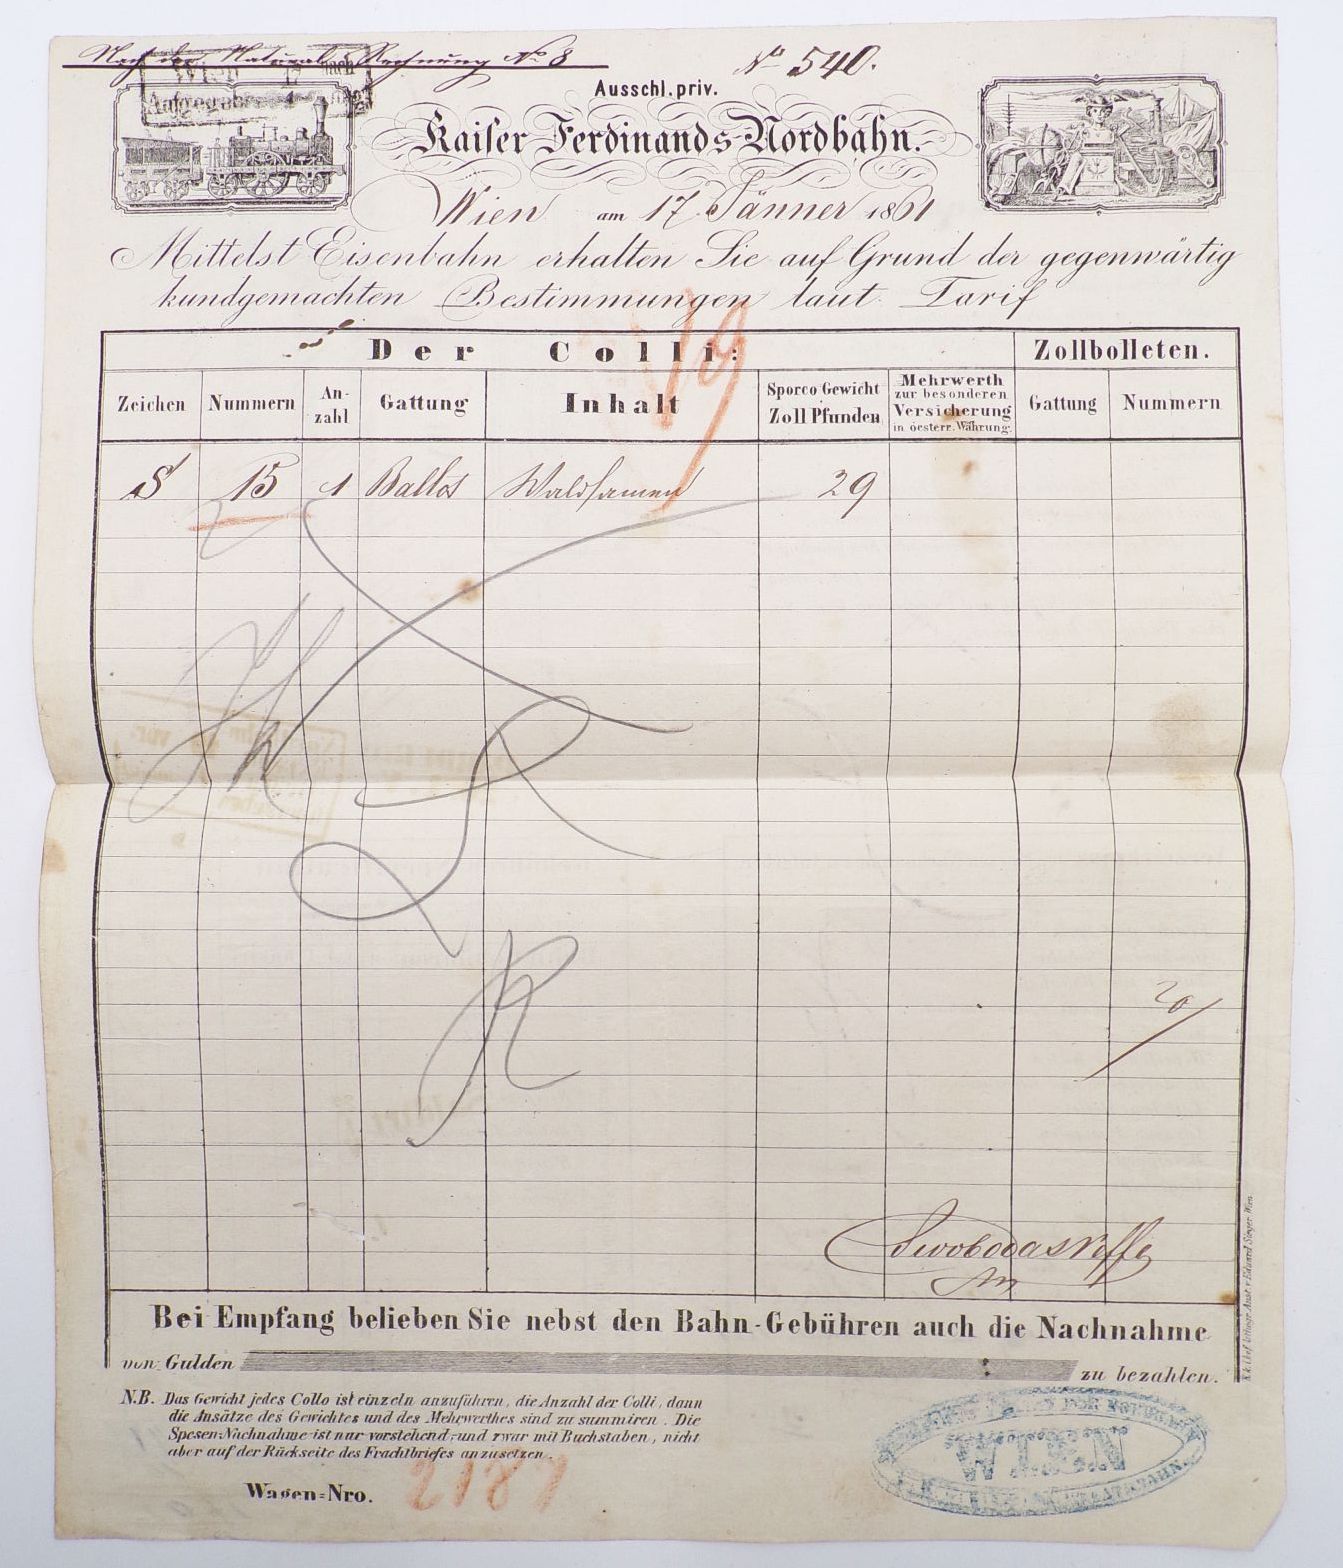 Nach der Natural-Rechnung No 8
No 540.
Wien 17 nach
Aufgegeben
Ausschl. priv.
Kaiser Ferdinands-Nordbahn.
Wien am 17 Jänner 1861
Mittelst Eisenbahn erhalten Sie auf Grund der gegenwärtig
kundgemachten Bestimmungen laut Tarif
19
Der Colli:
Zollbolleten.
Zeichen Nummern An-zahl Gattung Inhalt Sporco Gewicht Zoll Pfunden Mehrwerth zur besonderen Versicherung in oesterr. Währung. Gattung Nummern
S 15 1 Ballot Waldsamen 29
20
Bei Empfang belieben Sie nebst den Bahn-Gebühren auch die Nachnahme
von Gulden zu bezahlen.
N.B. Das Gewicht jedes Collo ist einzeln anzuführen, die Anzahl der Colli, dann
die Ansätze des Gewichtes und des Mehrwerthes sind zu summiren. Die
Spesen-Nachnahme ist nur vorstehend, und zwar mit Buchstaben, nicht
aber auf der Rückseite des Frachtbriefes anzusetzen.
Wagen-Nro. 2187
WIEN